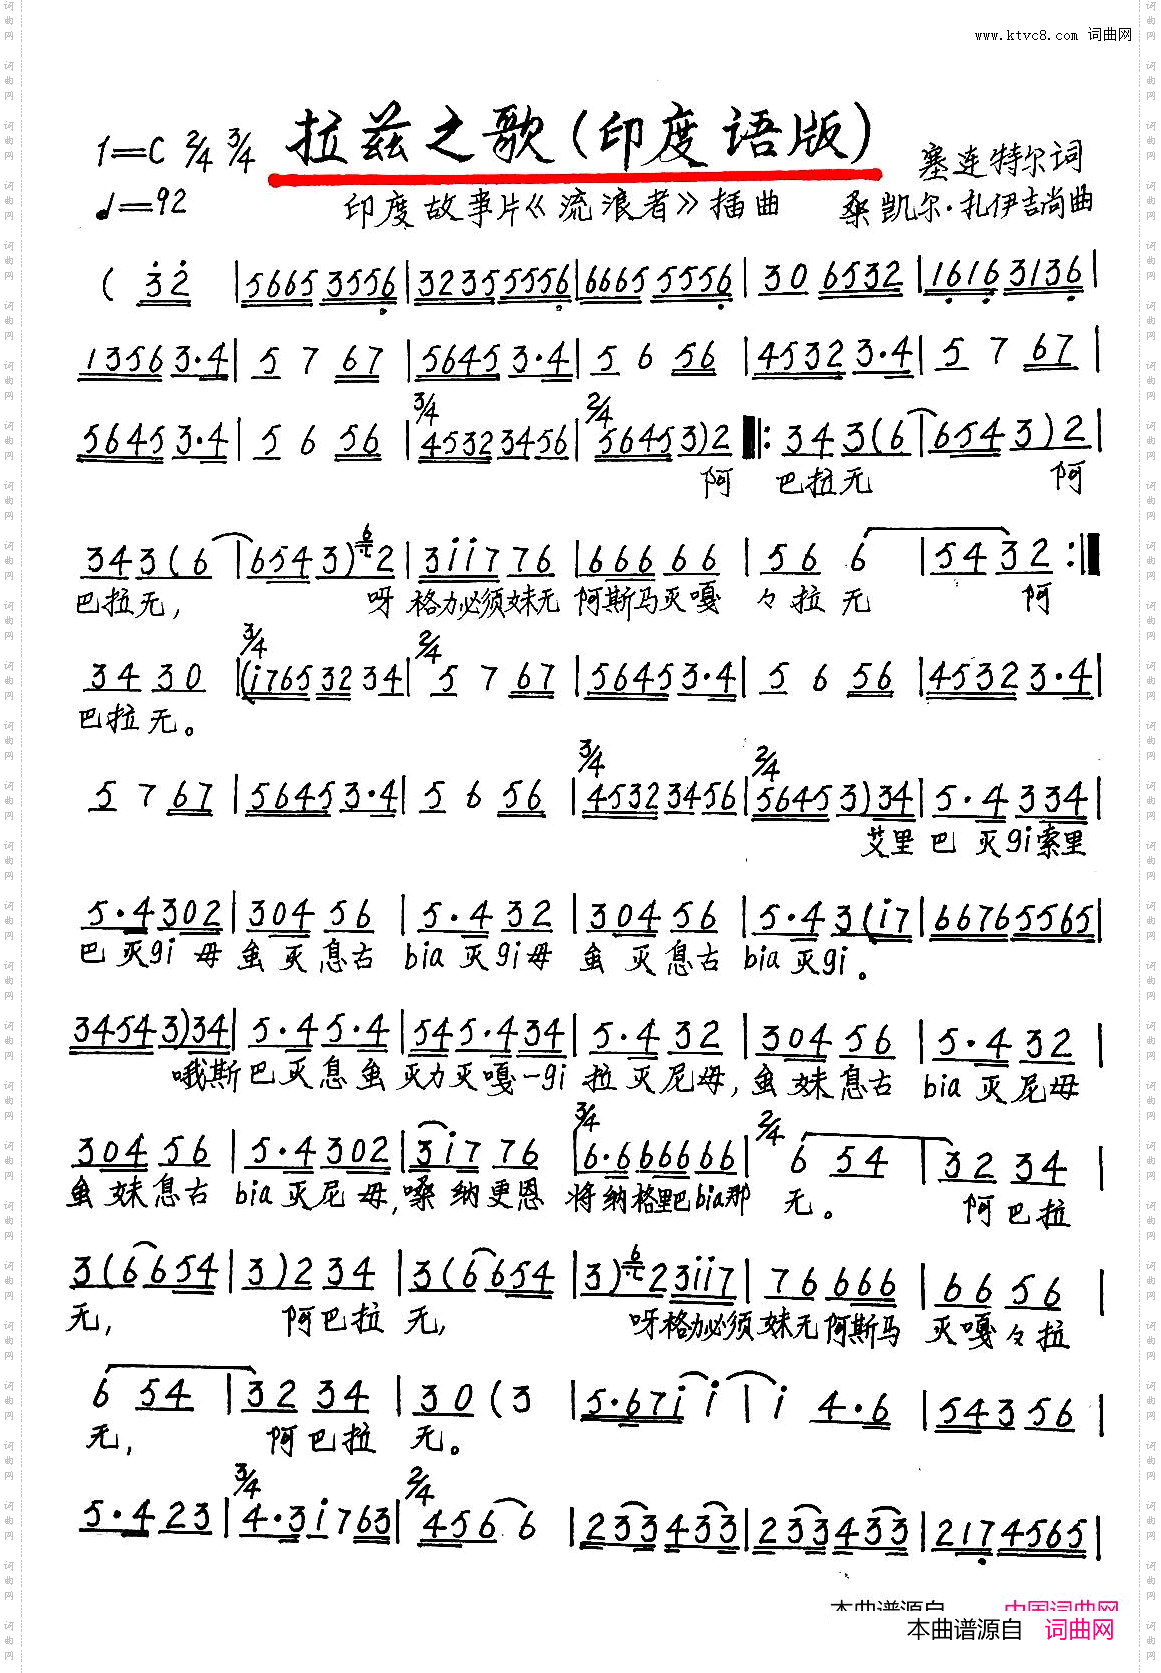 www.ktvc8.com 词曲网
拉兹之歌(印度语版)
1=C 2/4 3/4
塞连特尔词
♩=92
印度故事片《流浪者》插曲
桑凯尔·扎伊吉尚曲
( 3 2 | 5665 3556 | 3235 5556 | 6665 5556 | 30 6532 | 1616 3136 |
1356 3·4 | 5 7 67 | 5645 3·4 | 5 6 56 | 4532 3·4 | 5 7 67 |
3/4 2/4
5645 3·4 | 5 6 56 | 4532 3456 | 5645 3) 2 ‖: 343 (6 | 6543) 2 |
阿 巴拉无 阿
343 (6 | 6543) 2 | 3ii7 76 | 6666 66 | 56 6 | 54 32 :‖
巴拉无, 呀 格力必须妹无 阿斯马灭嘎 々拉无 阿
3/4 2/4
34 30 | (i765 32 34 | 5 7 67 | 5645 3·4 | 5 6 56 | 4532 3·4 |
巴拉无。
3/4 2/4
5 7 67 | 5645 3·4 | 5 6 56 | 4532 3456 | 5645 3) 34 | 5·4 334 |
艾里 巴 灭gi索里
5·4 302 | 304 56 | 5·4 32 | 304 56 | 5·4 3(i7 | 6676 5565 |
巴 灭gi 母 虽 灭 息古 bia 灭gi母 虽 灭 息古 bia 灭gi。
3454 3) 34 | 5·4 5·4 | 54 5·4 34 | 5·4 32 | 304 56 | 5·4 32 |
哦斯 巴灭息虽 灭力灭嘎一gi 拉 灭尼母, 虽 妹息古 bia 灭尼母
3/4 2/4
304 56 | 5·4 302 | 3i7 76 | 6·6 66 66 66 | 6 54 | 32 34 |
虽 妹息古 bia 灭尼 母, 嗓 纳更恩 将纳格里巴bia那 无。 阿巴拉
3 (6 654 | 3) 2 34 | 3 (6 654 | 3) 2 3ii7 | 76 666 | 66 56 |
无, 阿巴拉 无, 呀格力必须妹无阿斯马 灭嘎々拉
6 54 | 32 34 | 30 (3 | 5·67i i | i 4·6 | 543 56 |
无, 阿巴拉 无。
3/4 2/4
5·4 23 | 4·3 i 763 | 456 6 | 233 433 | 233 433 | 217 4565 |
本曲谱源自 中国词曲网
本曲谱源自 词曲网